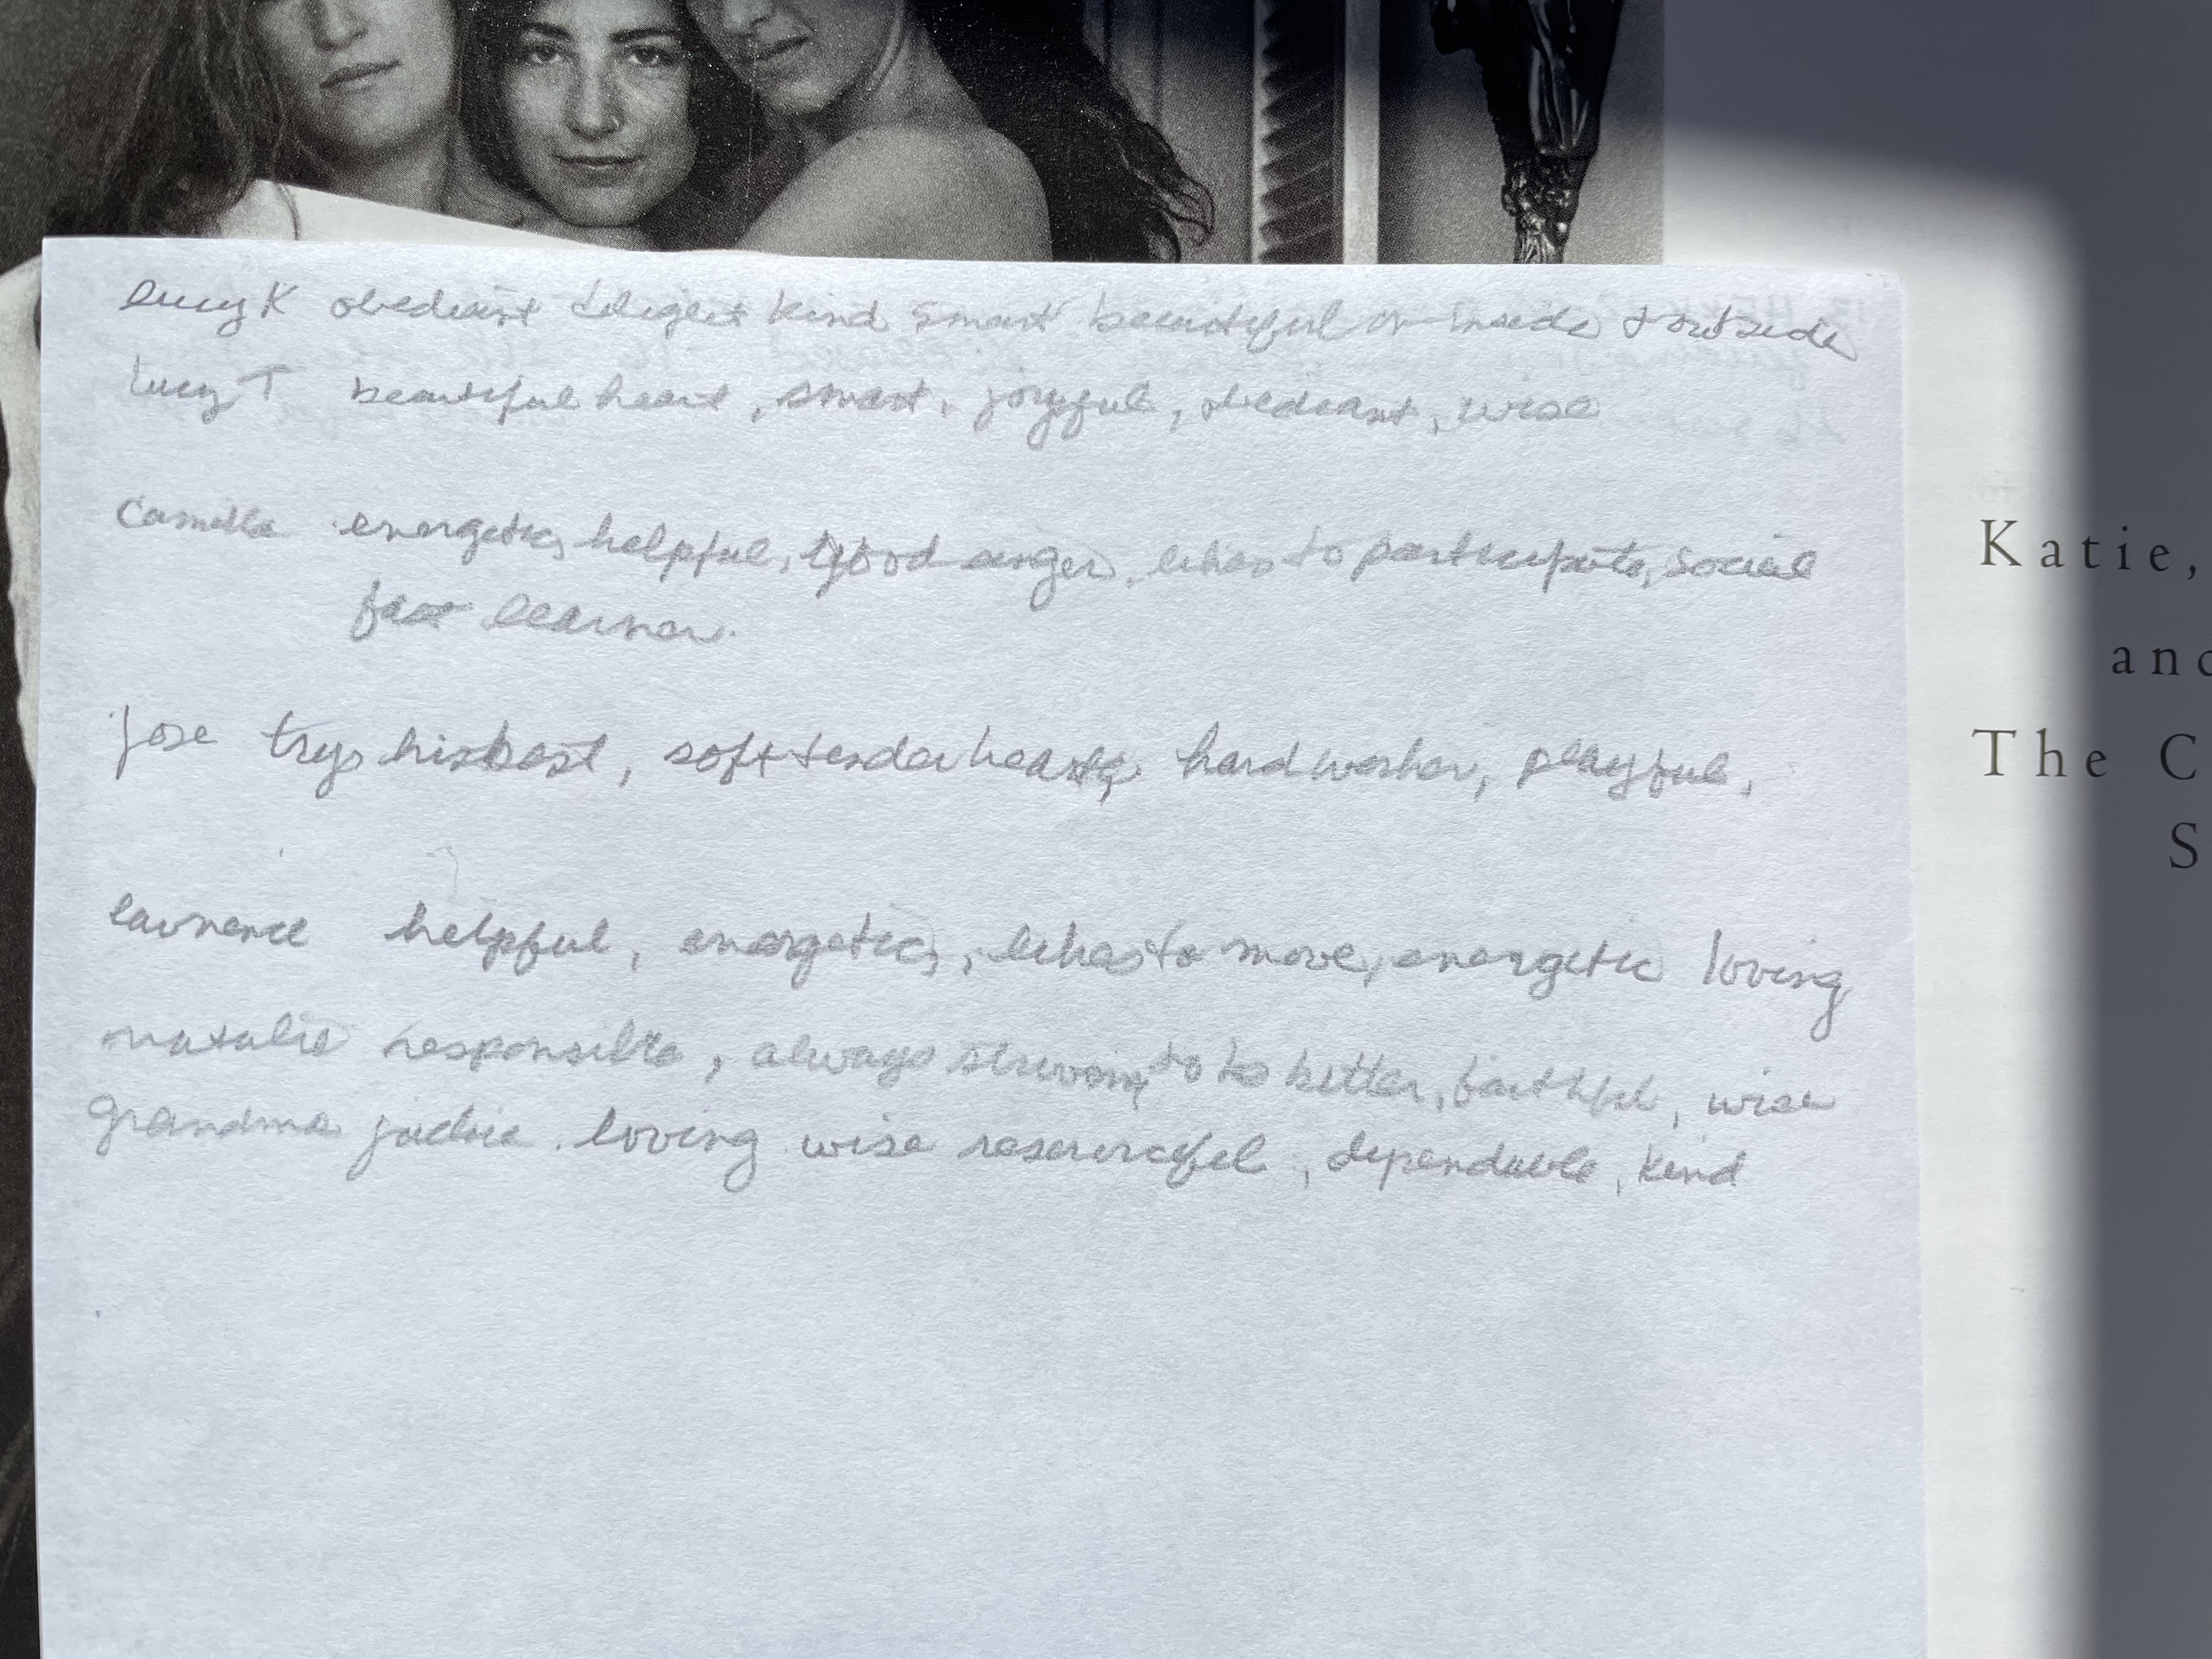 Lucy K obediant diligent kind smart beautiful on inside & outside
Lucy T beautiful heart, smart, joyful, obediant, wise
Camilla energetic, helpful, good singer, likes to participate, social
fast learner.
Jose trys his best, soft tender heart, hard worker, playful,
Lawrence helpful, energetic, likes to move, energetic loving
natalie responsible, always striving to be better, faithful, wise
grandma jackie loving wise , dependable, kind
Katie,
and
The C
S